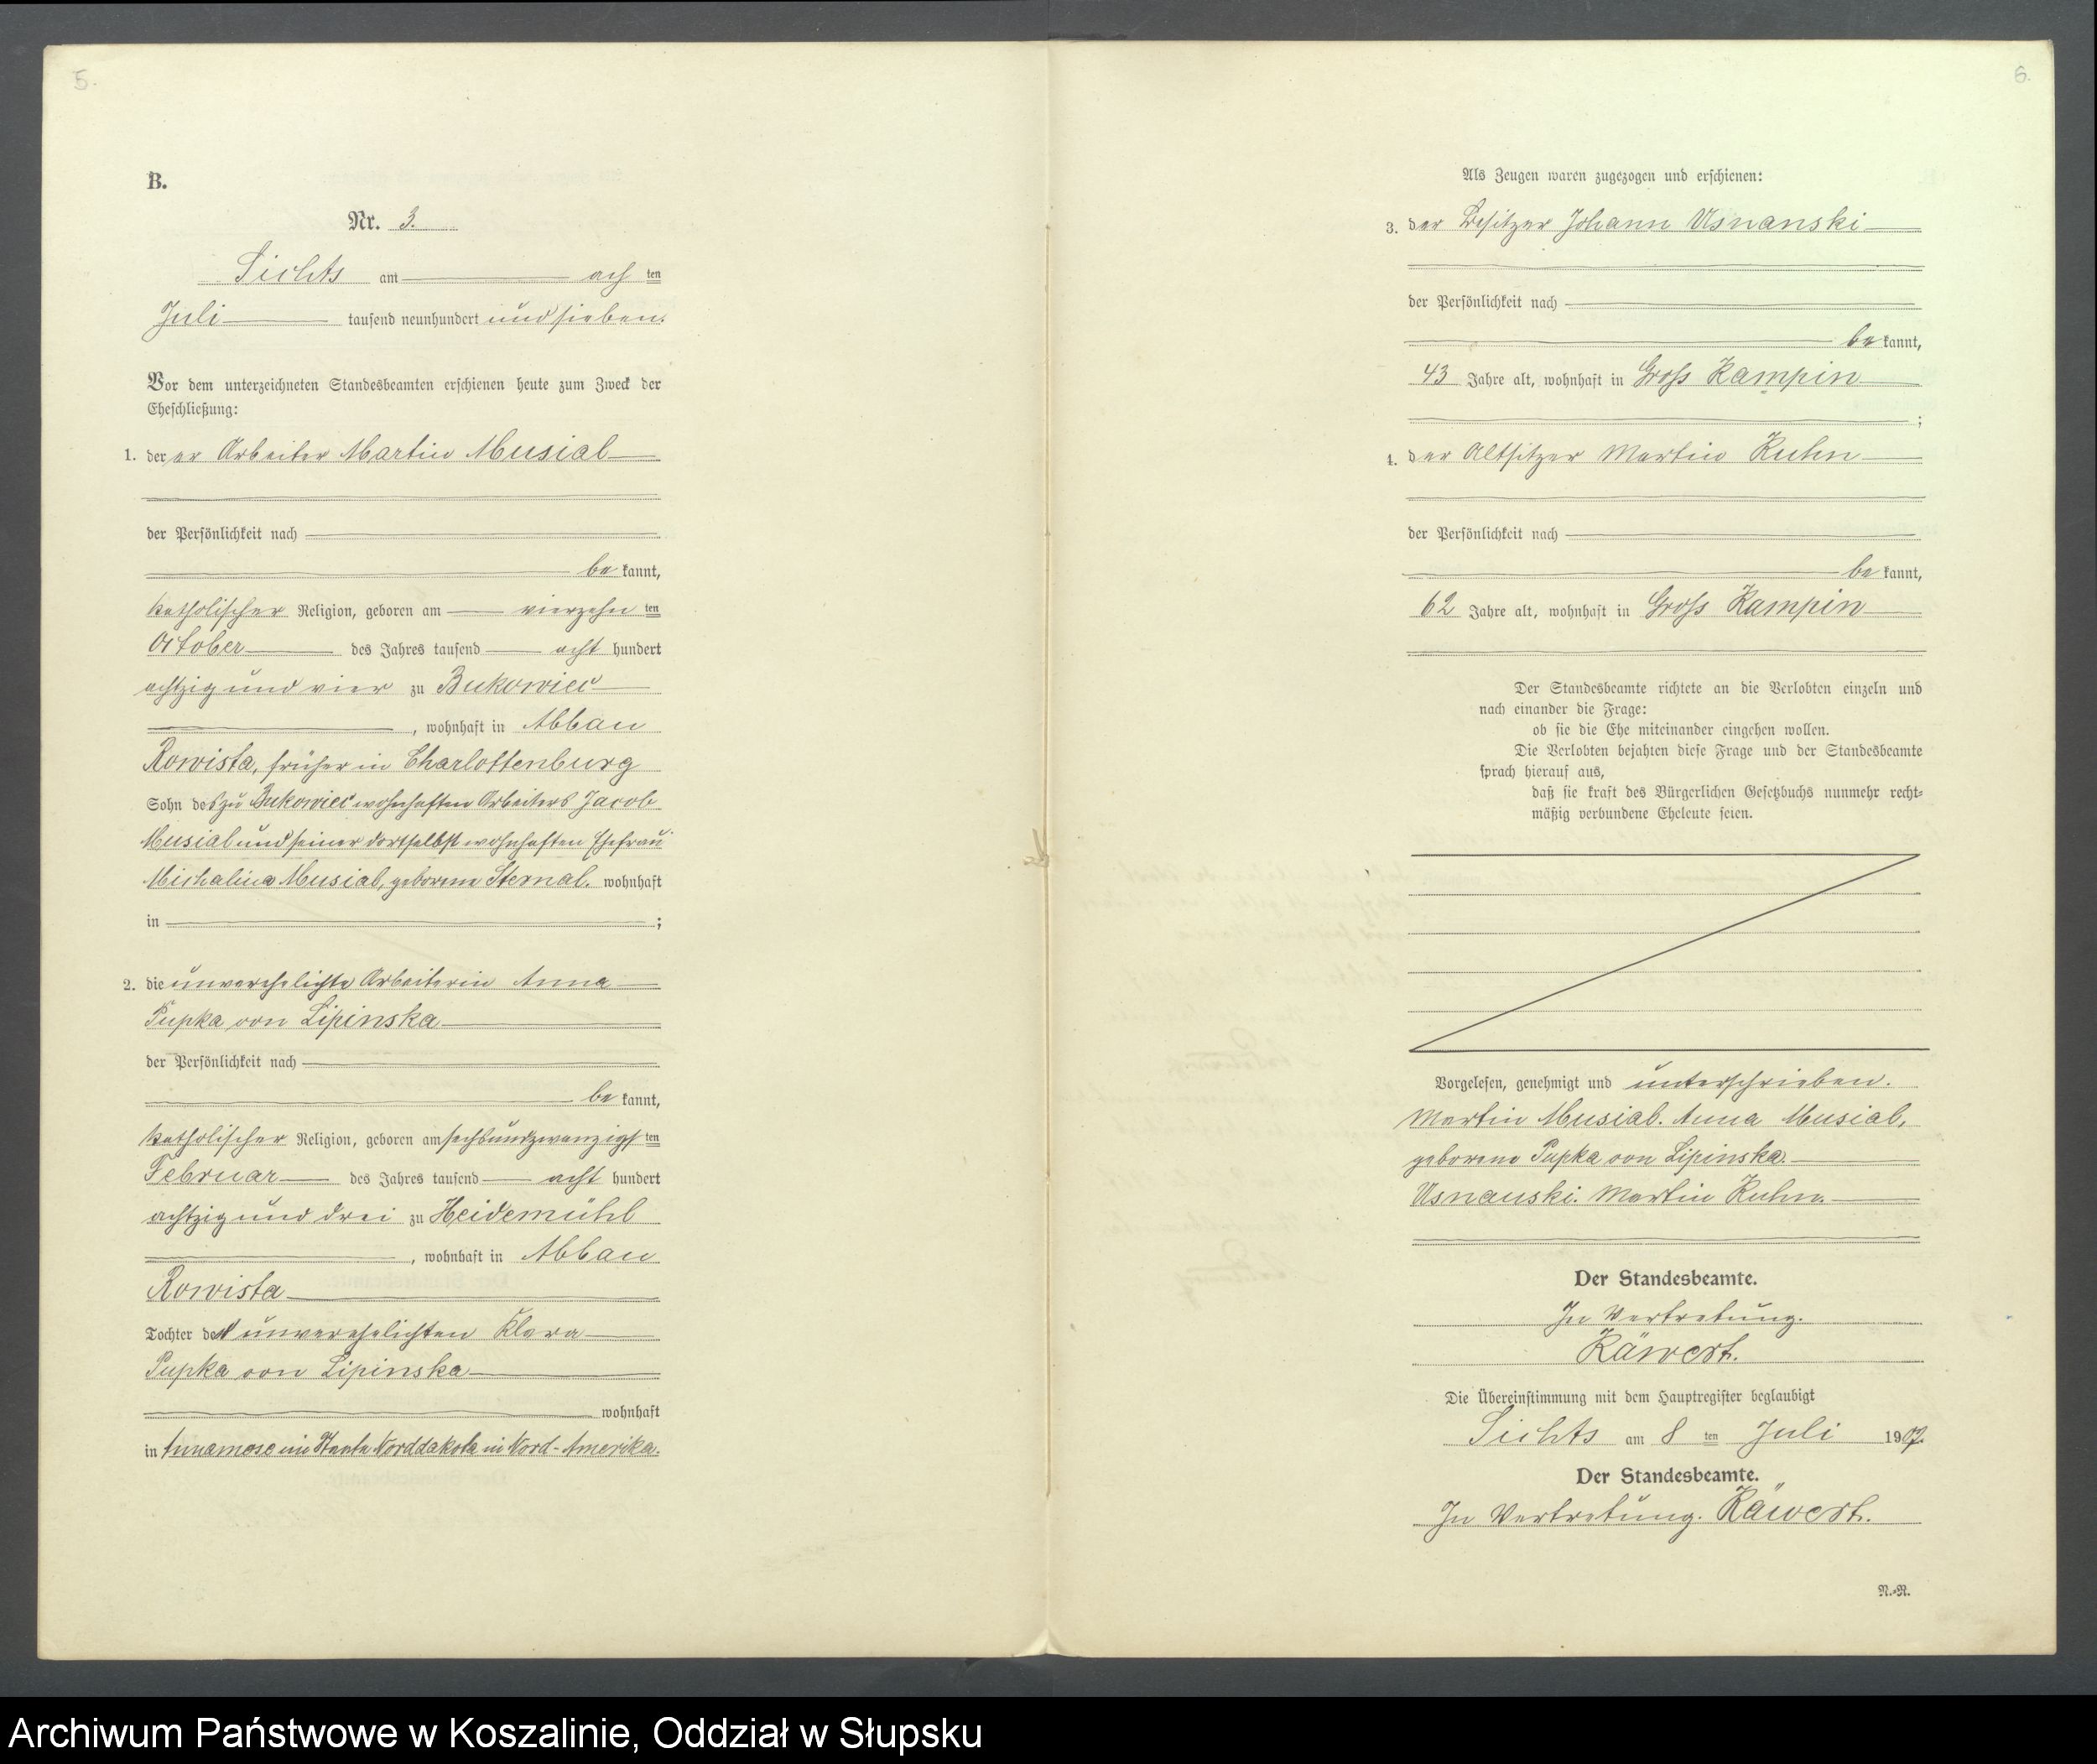 5.
B.
Nr. 3.
Sichts am ach ten
Juli tausend neunhundert und sieben.
Vor dem unterzeichneten Standesbeamten erschienen heute zum Zweck der
Eheschließung:
1. der er Arbeiter Martin Musial
der Persönlichkeit nach
be kannt,
katholischer Religion, geboren am vierzehn ten
October des Jahres tausend acht hundert
achtzig und vier zu Bukowiec
, wohnhaft in Abbau
Rowista, früher in Charlottenburg
Sohn des zu Bukowiec wohnhaften Arbeiters Jacob
Musial und seiner dortselbst wohnhaften Ehefrau
Michalina Musial, geborene Sternal. wohnhaft
in ;
2. die unverehelichte Arbeiterin Anna
Pupka von Lipinska
der Persönlichkeit nach
be kannt,
katholischer Religion, geboren am sechsundzwanzigs ten
Februar des Jahres tausend acht hundert
achtzig und drei zu Heidemühl
, wohnhaft in Abbau
Rowista
Tochter der unverehelichten Klara
Pupka von Lipinska
wohnhaft
in Annamose im Staate Norddakota in Nord-Amerika.
6.
Als Zeugen waren zugezogen und erschienen:
3. der Besitzer Johann Usnanski
der Persönlichkeit nach
be kannt,
43 Jahre alt, wohnhaft in Gross Kampin
;
4. der Altsitzer Martin Kuhn
der Persönlichkeit nach
be kannt,
62 Jahre alt, wohnhaft in Gross Kampin
Der Standesbeamte richtete an die Verlobten einzeln und
nach einander die Frage:
ob sie die Ehe miteinander eingehen wollen.
Die Verlobten bejahten diese Frage und der Standesbeamte
sprach hierauf aus,
daß sie kraft des Bürgerlichen Gesetzbuchs nunmehr recht-
mäßig verbundene Eheleute seien.
Vorgelesen, genehmigt und unterschrieben.
Martin Musial. Anna Musial,
geborene Pupka von Lipinska.
Usnanski. Martin Kuhn.
Der Standesbeamte.
In Vertretung.
Räwert.
Die Übereinstimmung mit dem Hauptregister beglaubigt
Sichts am 8 ten Juli 1907.
Der Standesbeamte.
In Vertretung. Räwert.
N.-R.
Archiwum Państwowe w Koszalinie, Oddział w Słupsku